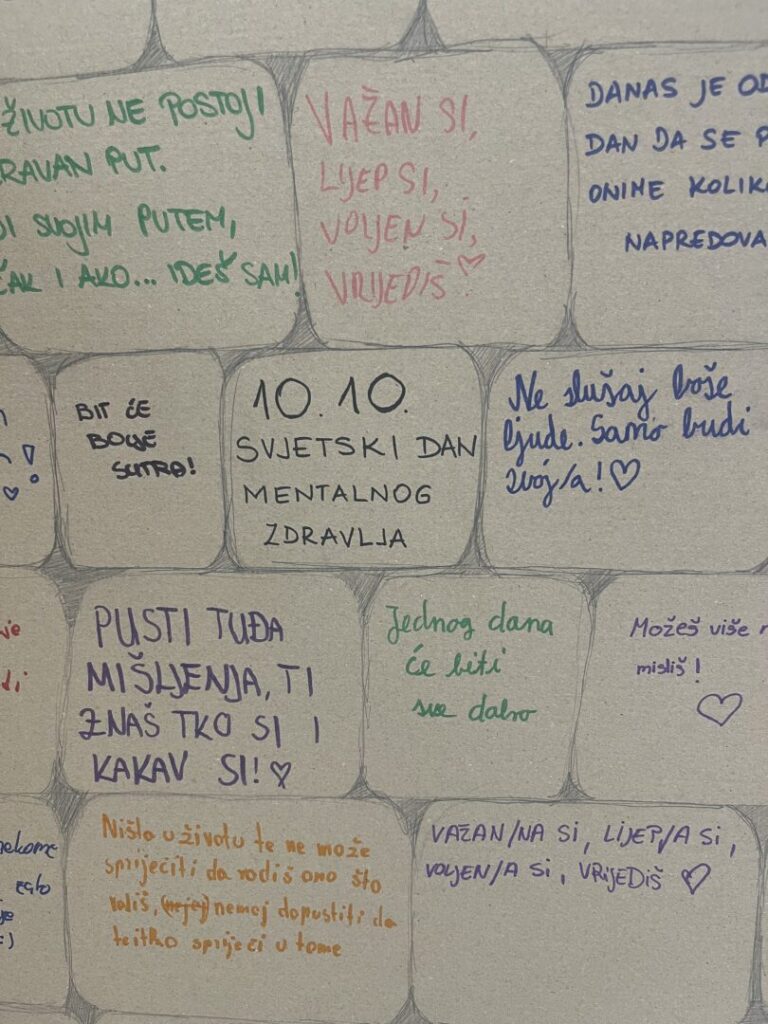 ŽIVOTU NE POSTOJI
RAVAN PUT.
SVOJIM PUTEM,
ČAK I AKO... IDEŠ SAM!
VAŽAN SI,
LIJEP SI,
VOLJEN SI,
VRIJEDIŠ ♡
DANAS JE OD
DAN DA SE P
ONIME KOLIKO
NAPREDOVA
BIT ĆE
BOLJE
SUTRA!
10. 10.
SVJETSKI DAN
MENTALNOG
ZDRAVLJA
Ne slušaj loše
ljude. Samo budi
svoj/a! ♡
PUSTI TUĐA
MIŠLJENJA, TI
ZNAŠ TKO SI I
KAKAV SI! ♡
Jednog dana
će biti
sve dobro
Možeš više
misliš! ♡
nekome
zato
:)
Ništa u životu te ne može
spriječiti da rodiš ono što
voliš, nemoj dopustiti da
te itko spriječi u tome
VAŽAN/NA SI, LIJEP/A SI,
VOLJEN/A SI, VRIJEDIŠ ♡